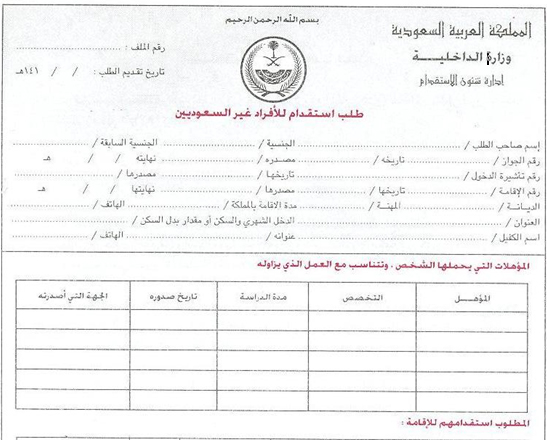 بسم الله الرحمن الرحيم
المملكة العربية السعودية
وزارة الداخلية
ادارة شئون الاستقدام
رقم الملف :
تاريخ تقديم الطلب : / / ١٤١هـ
طلب استقدام للأفراد غير السعوديين
إسم صاحب الطلب / الجنسية / الجنسية السابقة /
رقم الجواز / تاريخه / مصدره / نهايته / / هـ
رقم تأشيرة الدخول / تاريخها / مصدرها /
رقم الإقامة / تاريخها / مصدرها / نهايتها / / هـ
الديانة / المهنة / مدة الاقامة بالمملكة / الهاتف /
العنوان / الدخل الشهري والسكن أو مقدار بدل السكن /
اسم الكفيل / عنوانه / الهاتف /
المؤهلات التي يحملها الشخص ، وتتناسب مع العمل الذي يزاوله
المؤهـــل التخصص مدة الدراسة تاريخ صدوره الجهة التي أصدرته
المطلوب استقدامهم للإقامة :